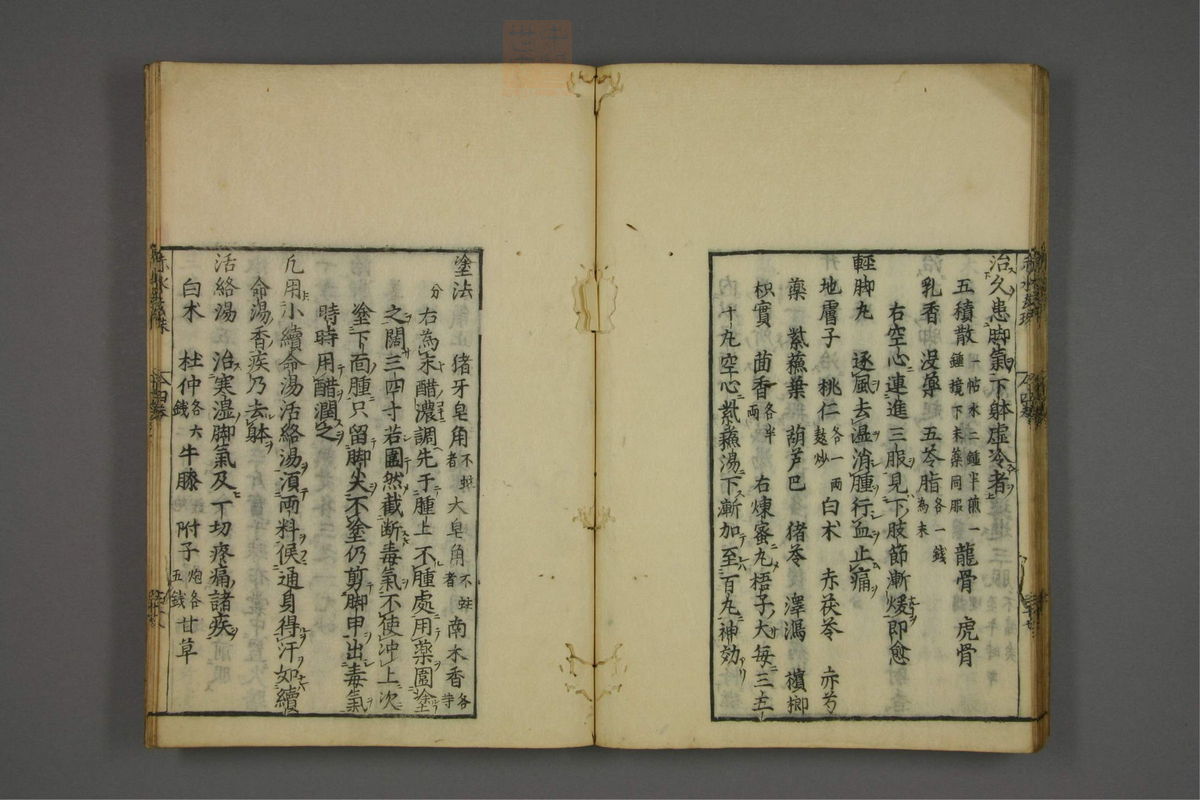 治久患脚氣下躰虛冷者
五積散一帖水二鍾半煎一鍾撹下末藥同服 龍骨 虎骨
乳香 没藥 五苓脂各一錢為末
右空心連進三服見下肢節漸煖即愈
輕脚丸 逐風去濕消腫行血止痛
地膚子 桃仁各一兩麩炒 白朮 赤茯苓 赤芍
藥 紫蘓葉 葫芦巴 猪苓 澤瀉 檳榔
枳實 茴香各半兩 右煉蜜丸梧子大每三五
十丸空心紫蘓湯下漸加至百丸神効
塗法 猪牙皂角不蛀者 大皂角不蛀者 南木香各等
分 右為末醋濃調先于腫上不腫處用藥圍塗
之闊三四寸若圍然截断毒氣不使沖上次
塗下面腫只留脚尖不塗仍剪脚甲出毒氣
時時用醋潤之
凡用小續命湯活絡湯須兩料候通身得汗如續
命湯香疾乃去躰
活絡湯 治寒濕脚氣及一切疼痛諸疾
白朮 杜仲各六錢 牛膝 附子炮各五錢 甘草